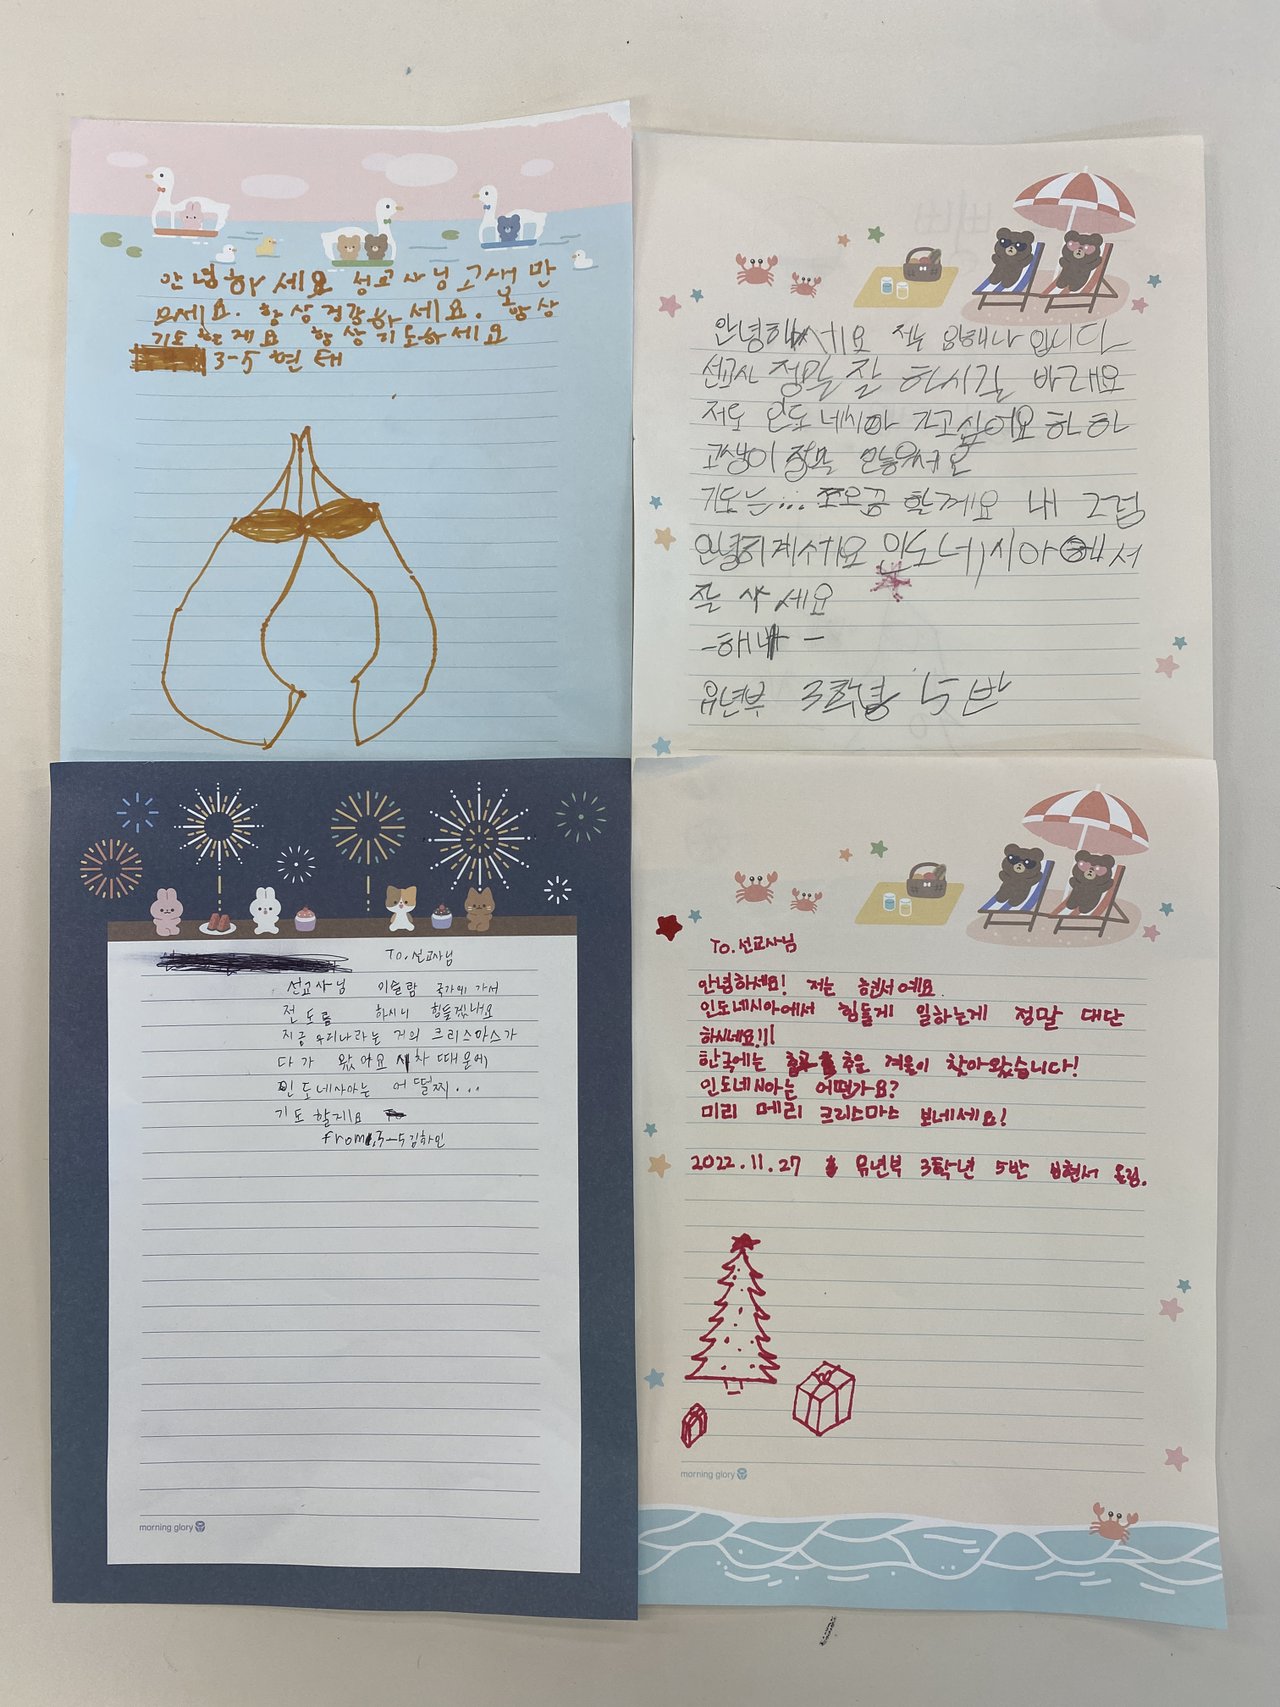 안녕하세요 선교사님 고생 만
으세요. 항상건강하세요. 항상
기도할게요 항상기도하세요
3-5 현태
안녕하세요 저는 해나 입니다
선교사 정말 잘 하시길 바래요
저도 인도네시아 가고싶어요 하하
고생이 정말
기도는... 쪼오끔 할께요 내 그럼
안녕히계시기요 인도네시아에서
잘 사세요
-해나-
유년부 3학년 5반
To. 선교사님
선교사님 이슬람 국가에 가서
전도를 하시니 힘들겠네요
지금 우리나라는 거의 크리스마스가
다가 왔어요 시차 때문에
인도네시아는 어떨찌...
기도할게요
From, 3-5김하민
morning glory
To. 선교사님
안녕하세요! 저는 현서예요.
인도네시아에서 힘들게 일하는게 정말 대단
하시네요!!!
한국에는 추운 겨울이 찾아왔습니다!
인도네시아는 어떤가요?
미리 메리 크리스마스 보네세요!
2022.11.27 유년부 3학년 5반 현서 올림.
morning glory